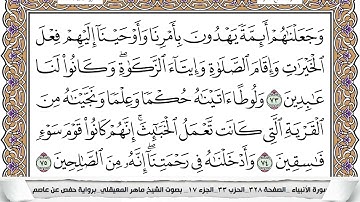 وَجَعَلْنَٰهُمْ أَئِمَّةً يَهْدُونَ بِأَمْرِنَا وَأَوْحَيْنَآ إِلَيْهِمْ فِعْلَ
ٱلْخَيْرَٰتِ وَإِقَامَ ٱلصَّلَوٰةِ وَإِيتَآءَ ٱلزَّكَوٰةِ ۖ وَكَانُوا۟ لَنَا
عَٰبِدِينَ ٧٣ وَلُوطًا ءَاتَيْنَٰهُ حُكْمًا وَعِلْمًا وَنَجَّيْنَٰهُ مِنَ
ٱلْقَرْيَةِ ٱلَّتِى كَانَت تَّعْمَلُ ٱلْخَبَٰٓئِثَ ۗ إِنَّهُمْ كَانُوا۟ قَوْمَ سَوْءٍ
فَٰسِقِينَ ٧٤ وَأَدْخَلْنَٰهُ فِى رَحْمَتِنَآ ۖ إِنَّهُۥ مِنَ ٱلصَّٰلِحِينَ ٧٥
سورة الأنبياء _الصفحة ٣٢٨_ الحزب ٣٣_ الجزء ١٧_ بصوت الشيخ ماهر المعيقلي_ برواية حفص عن عاصم